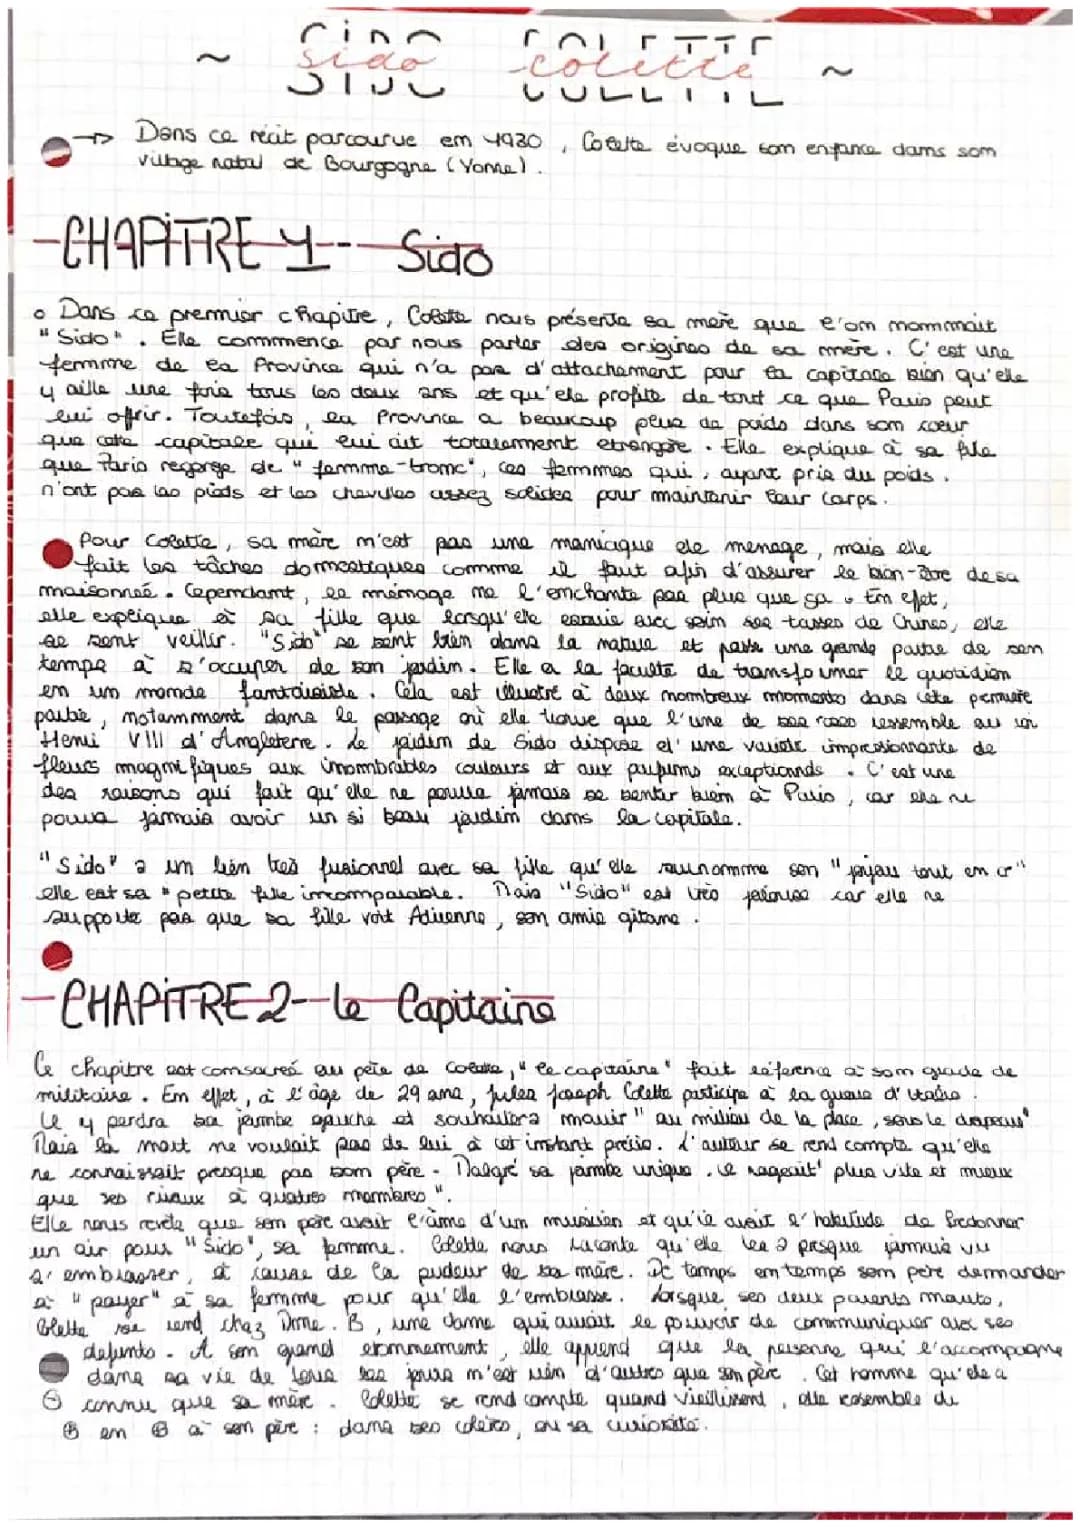 ~ sido colette ~
SIDO COLETTE
→ Dans ce récit parcourue en 1930, Colette évoque son enfance dans son
village natal de Bourgogne (Yonne).
-CHAPiTRE 1-- Sido
o Dans ce premier chapitre, Colette nous présente sa mère que l'on nommait
"Sido". Elle commence par nous parler des origines de sa mère. C'est une
femme de la Province qui n'a pas d'attachement pour la capitale bien qu'elle
y aille une fois tous les deux ans et qu'elle profite de tout ce que Paris peut
lui offrir. Toutefois, la Province a beaucoup plus de poids dans son coeur
que cette capitale qui lui est totalement etrangère. Elle explique à sa fille
que Paris regorge de "femme-tronc", ces femmes qui, ayant pris du poids,
n'ont pas les pieds et les chevilles assez solides pour maintenir leur corps.
Pour Colette, sa mère n'est pas une maniaque de menage, mais elle
fait les tâches domestiques comme il faut afin d'assurer le bien-être de sa
maisonneé. Cependant, le ménage ne l'enchante pas plus que ça. En effet,
elle explique à sa fille que lorsqu'elle essuie avec soin ses tasses de Chine, elle
se sent veillir. "Sido" se sent bien dans la nature et passe une grande partie de son
temps à s'occuper de son jardin. Elle a la faculté de transformer le quotidien
en un monde fantaisiste. Cela est illustré à deux nombreux moments dans cette première
partie, notamment dans le passage où elle trouve que l'une de ses roses ressemble au roi
Henri VIII d'Angleterre. Le jardin de Sido dispose d'une variété impressionnante de
fleurs magnifiques aux inombrables couleurs et aux parfums exceptionnels. C'est une
des raisons qui fait qu'elle ne pourra jamais se sentir bien à Paris, car elle ne
pourra jamais avoir un si beau jardin dans la capitale.
"Sido" a un lien très fusionnel avec sa fille qu'elle surnomme son "joyau tout en or"
elle est sa "petite fille incomparable. Mais "Sido" est très jalouse car elle ne
supporte pas que sa fille voit Adrienne, son amie gitane.
-CHAPiTRE 2--le Capitaine
Ce chapitre est consacreé au père de Colette, "le capitaine" fait réference à son grade de
militaire. En effet, à l'âge de 29 ans, Jules Joseph Colette participe à la guerre d'Italie.
Il y perdra sa jambe gauche et souhaitera mourir "au milieu de la place, sous le drapeau"
Mais la mort ne voulait pas de lui à cet instant précis. L'auteur se rend compte qu'elle
ne connaissait presque pas son père. Malgré sa jambe unique, il nageait "plus vite et mieux
que ses rivaux à quatres membres".
Elle nous revele que son père avait l'âme d'un musicien et qu'il avait l'habitude de fredonner
un air pour "Sido", sa femme. Colette nous raconte qu'elle les a presque jamais vu
s'embrasser, à cause de la pudeur de sa mère. De temps en temps son père demander
à "payer" à sa femme pour qu'elle l'embrasse. Lorsque ses deux parents morts,
Colette se rend chez Mme. B, une dame qui aurait le pouvoir de communiquer avec ses
defunts. A son grand etonnement, elle apprend que la personne qui l'accompagne
dans sa vie de tous les jours n'est rien d'autres que son père. Cet homme qu'elle a
⊖ connu que sa mère. Colette se rend compte quand vieillissent, elle resemble de
⊕ en ⊕ à son père : dans ses colères, ou sa curiosité.